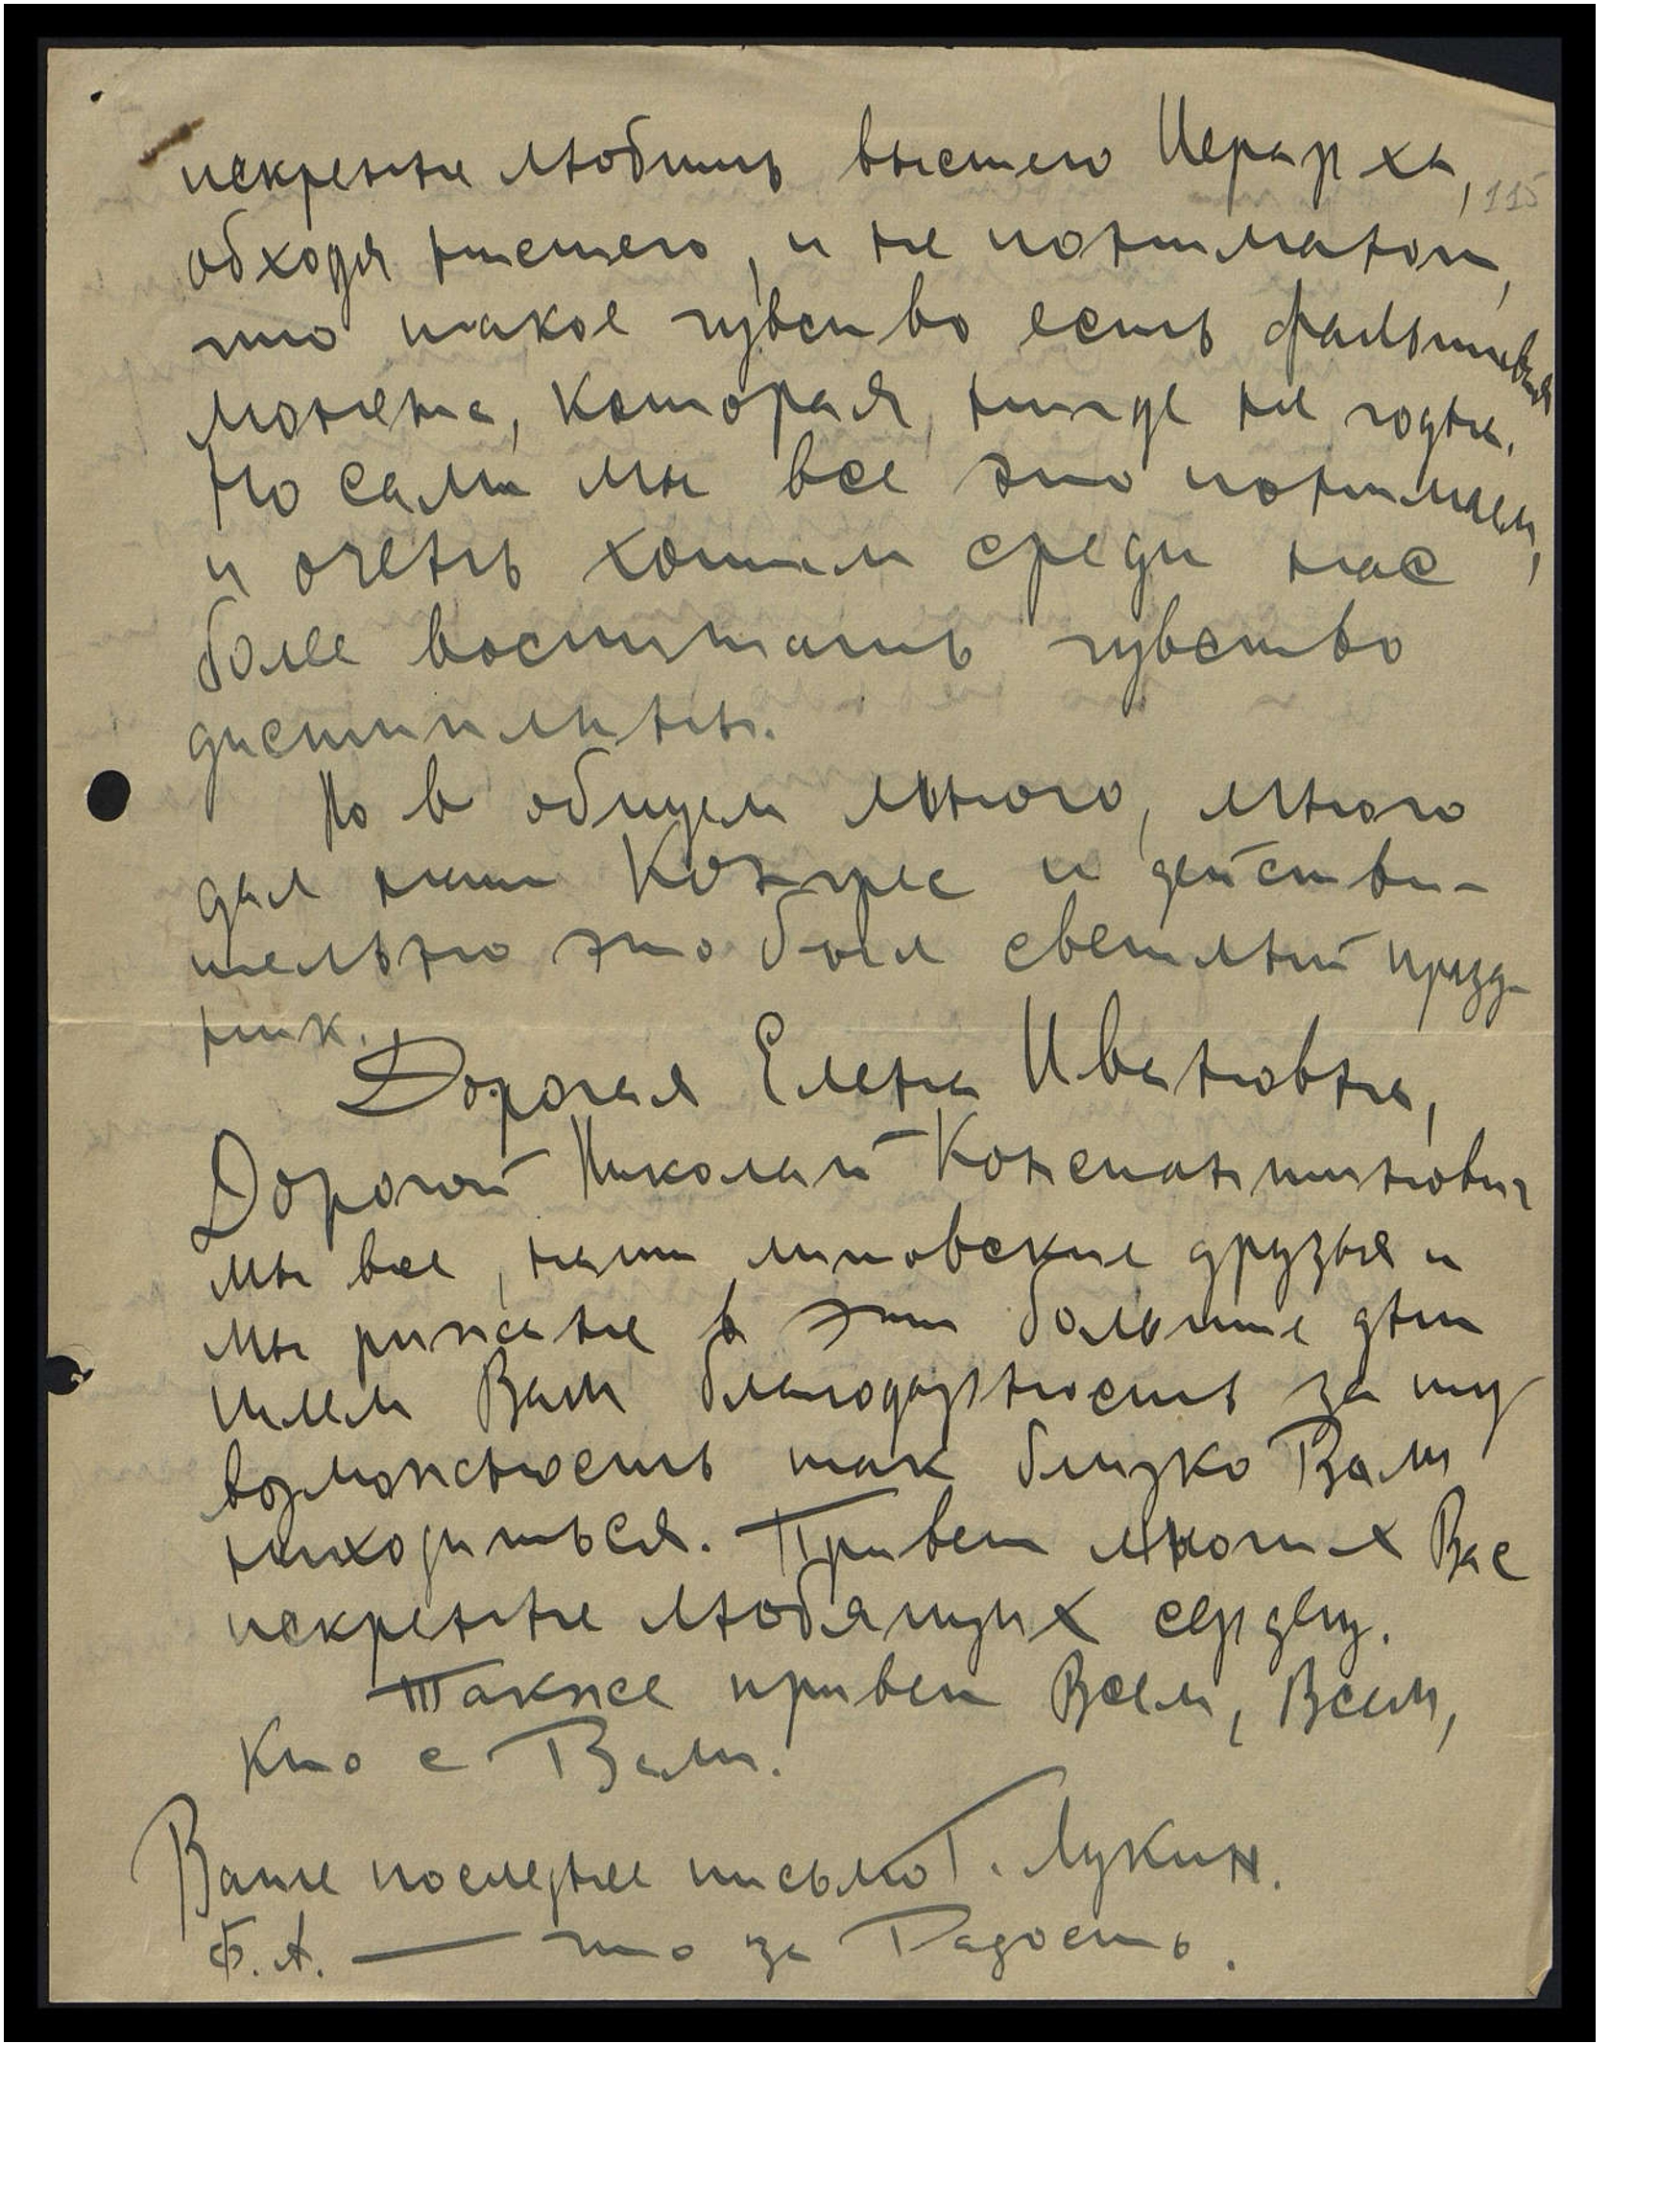 искренне любить высшего Иерарха,
115
обходя низшего, и не понимают,
что такое чувство есть фальшивая
монета, которая нигде не годна.
Но сами мы все это понимаем,
и очень хотим среди нас
более воспитать чувство
дисциплины.
Но в общем много, много
дал наш Конгрес и действи-
тельно это был светлый празд-
ник.
Дорогая Елена Ивановна,
Дорогой Николай Константинович
мы все, наши литовские друзья и
мы рижане в эти большие дни
шлем Вам благодарность за ту
возможность так близко Вам
находиться. Привет многих Вас
искренне любящих сердец.
Также привет Всем, Всем,
Кто с Вами.
Г. Лукин.
Ваше последнее письмо
Ф. А. — что за Радость.